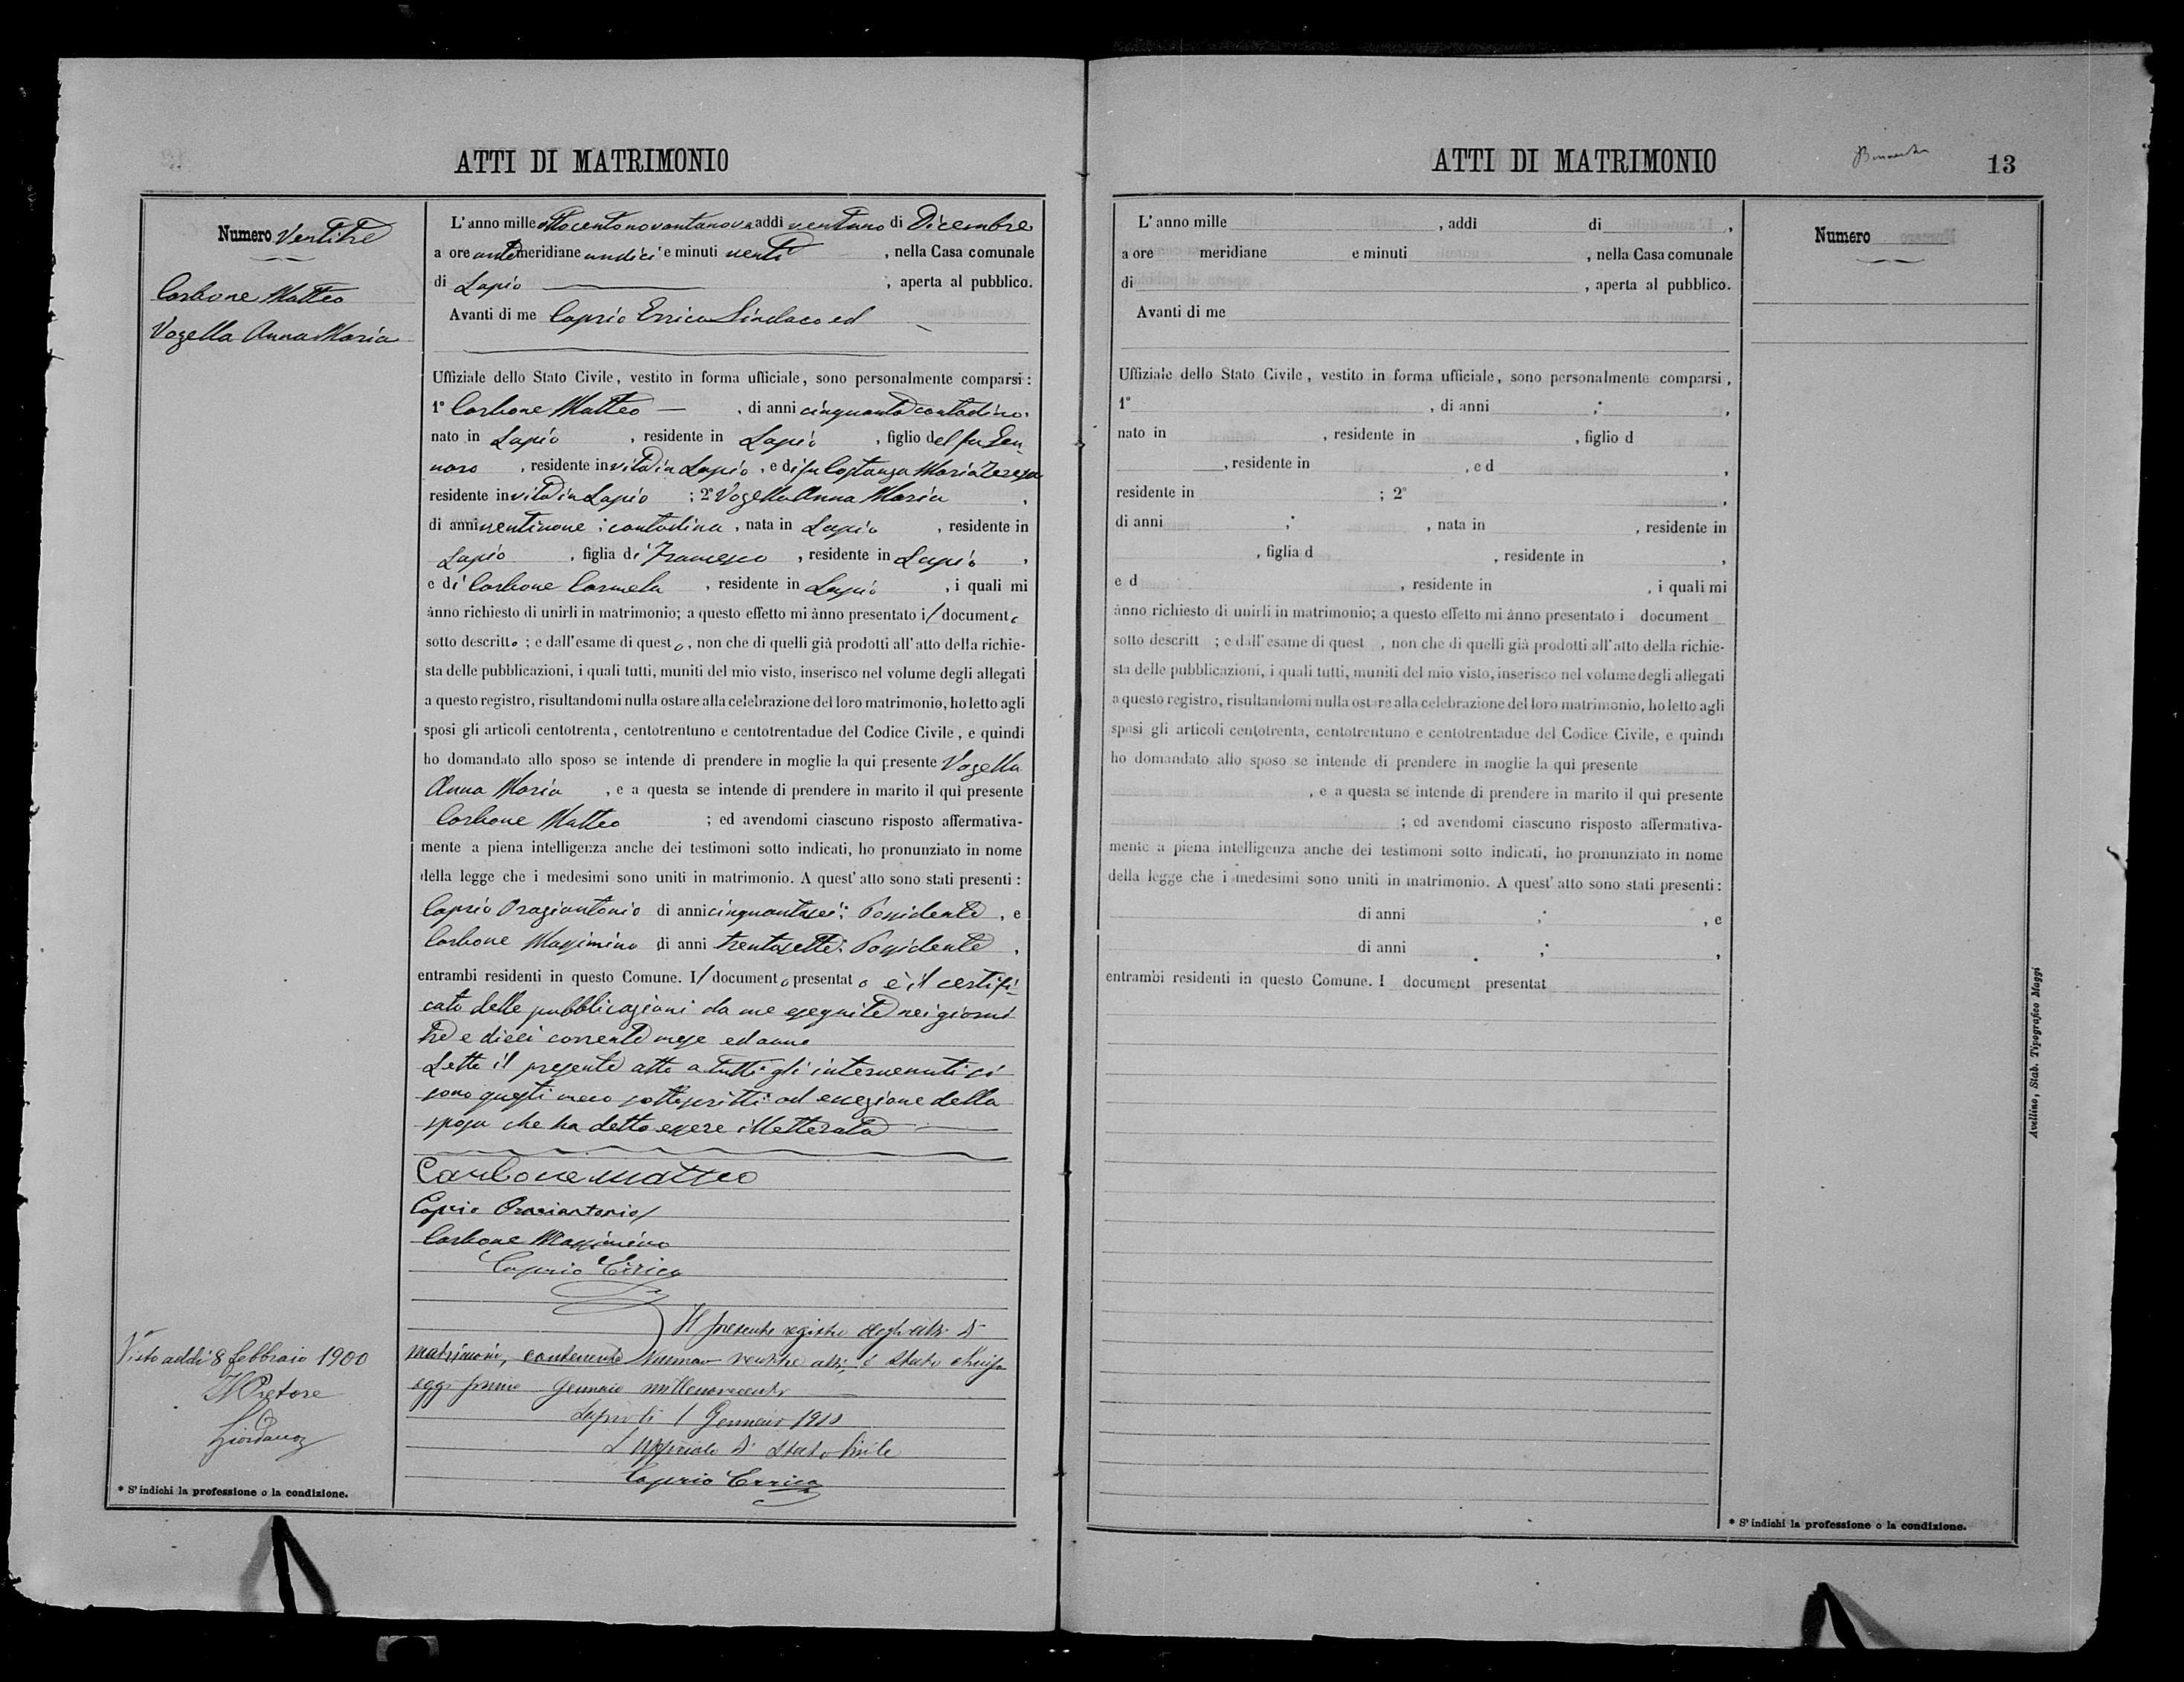 ATTI DI MATRIMONIO
Numero Ventitre
Carbone Matteo
Vozella Anna Maria
L'anno mille ottocentonovantanove addì ventuno di Dicembre
a ore antemeridiane undici e minuti venti , nella Casa comunale
di Lapio , aperta al pubblico.
Avanti di me Caprio Errico Sindaco ed
Uffiziale dello Stato Civile, vestito in forma ufficiale, sono personalmente comparsi:
1° Carbone Matteo — , di anni cinquanta contadino,
nato in Lapio , residente in Lapio , figlio del fu Gen
naro , residente in vita in Lapio , e di fu Costanza Maria Teresa
residente in vita in Lapio ; 2° Vozella Anna Maria ,
di anni ventinove ; contadina , nata in Lapio , residente in
Lapio , figlia di Francesco , residente in Lapio ,
e di Carbone Carmela , residente in Lapio , i quali mi
ànno richiesto di unirli in matrimonio; a questo effetto mi ànno presentato il documento
sotto descritto ; e dall'esame di questo, non che di quelli già prodotti all'atto della richie-
sta delle pubblicazioni, i quali tutti, muniti del mio visto, inserisco nel volume degli allegati
a questo registro, risultandomi nulla ostare alla celebrazione del loro matrimonio, ho letto agli
sposi gli articoli centotrenta, centotrentuno e centotrentadue del Codice Civile, e quindi
ho domandato allo sposo se intende di prendere in moglie la qui presente Vozella
Anna Maria , e a questa se intende di prendere in marito il qui presente
Carbone Matteo ; ed avendomi ciascuno risposto affermativa-
mente a piena intelligenza anche dei testimoni sotto indicati, ho pronunziato in nome
della legge che i medesimi sono uniti in matrimonio. A quest'atto sono stati presenti:
Caprio Oraziantonio di anni cinquantasei ; Possidente , e
Carbone Massimino di anni trentasette ; Possidente ,
entrambi residenti in questo Comune. Il documento presentato è il certifi-
cato delle pubblicazioni da me eseguite nei giorni
tre e dieci corrente mese ed anno
Letto il presente atto a tutti gli intervenuti si
sono questi meco sottoscritti ad eccezione della
sposa che ha detto essere illetterata
Carbone Matteo
Caprio Oraziantonio
Carbone Massimino
Caprio Errico
Il presente registro degli atti di
matrimonio, contenente Numero ventitre atti, è stato chiuso
oggi primo Gennaio millenovecento
Lapio li 1 Gennaio 1900
L'Uffiziale di Stato Civile
Caprio Errico
Visto addì 8 febbraio 1900
Il Pretore
Giordano
* S'indichi la professione o la condizione.
ATTI DI MATRIMONIO
13
L'anno mille , addì di ,
a ore meridiane e minuti , nella Casa comunale
di , aperta al pubblico.
Avanti di me
Uffiziale dello Stato Civile, vestito in forma ufficiale, sono personalmente comparsi,
1° , di anni ; ,
nato in , residente in , figlio d
, residente in , e d ,
residente in ; 2° ,
di anni ; , nata in , residente in
, figlia d , residente in ,
e d , residente in , i quali mi
ànno richiesto di unirli in matrimonio; a questo effetto mi ànno presentato i document
sotto descritt ; e dall'esame di quest , non che di quelli già prodotti all'atto della richie-
sta delle pubblicazioni, i quali tutti, muniti del mio visto, inserisco nel volume degli allegati
a questo registro, risultandomi nulla ostare alla celebrazione del loro matrimonio, ho letto agli
sposi gli articoli centotrenta, centotrentuno e centotrentadue del Codice Civile, e quindi
ho domandato allo sposo se intende di prendere in moglie la qui presente
, e a questa se intende di prendere in marito il qui presente
; ed avendomi ciascuno risposto affermativa-
mente a piena intelligenza anche dei testimoni sotto indicati, ho pronunziato in nome
della legge che i medesimi sono uniti in matrimonio. A quest'atto sono stati presenti:
di anni ; , e
di anni ; ,
entrambi residenti in questo Comune. I document presentat
Numero
* S'indichi la professione o la condizione.
Avellino, Stab. Tipografico Maggi